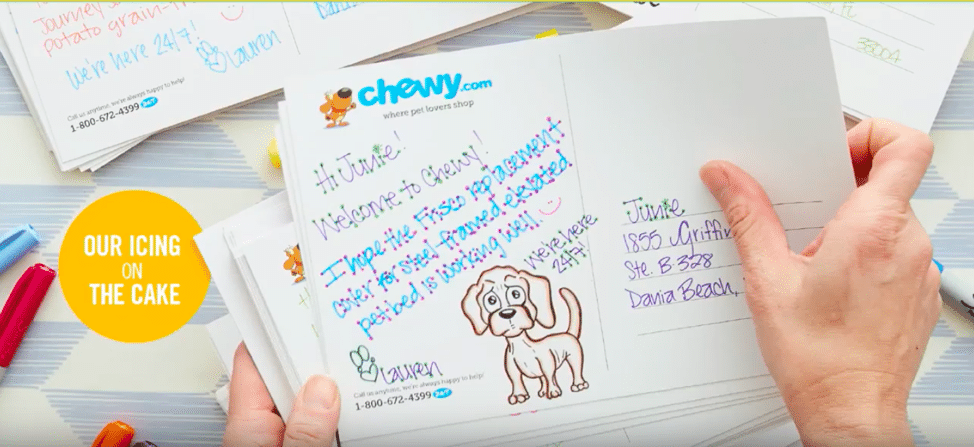 Journey
potato grain-fr
We're here 24/7!
Lauren
Call us anytime, we're always happy to help!
1-800-672-4399 24/7
33004
chewy.com
where pet lovers shop
Hi Junie!
Welcome to Chewy!
I hope the Frisco replacement
cover for steel-framed elevated
pet bed is working well
We're here
24/7!
Lauren
Call us anytime, we're always happy to help!
1-800-672-4399 24/7
Junie
1855 Griffin
Ste. B-328
Dania Beach,
OUR ICING
ON
THE CAKE